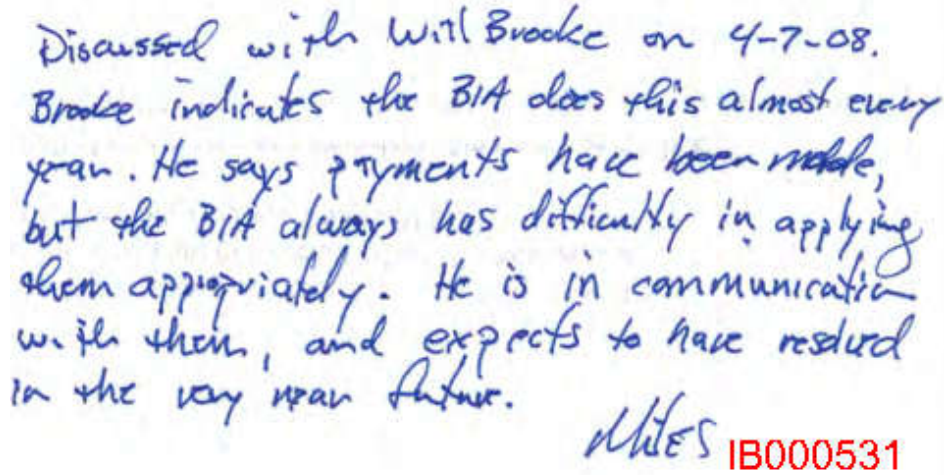 Discussed with Will Brooke on 4-7-08.
Brooke indicates the BIA does this almost every
year. He says payments have been made,
but the BIA always has difficulty in applying
them appropriately. He is in communication
with them, and expects to have resolved
in the very near future.
Miles
IB000531